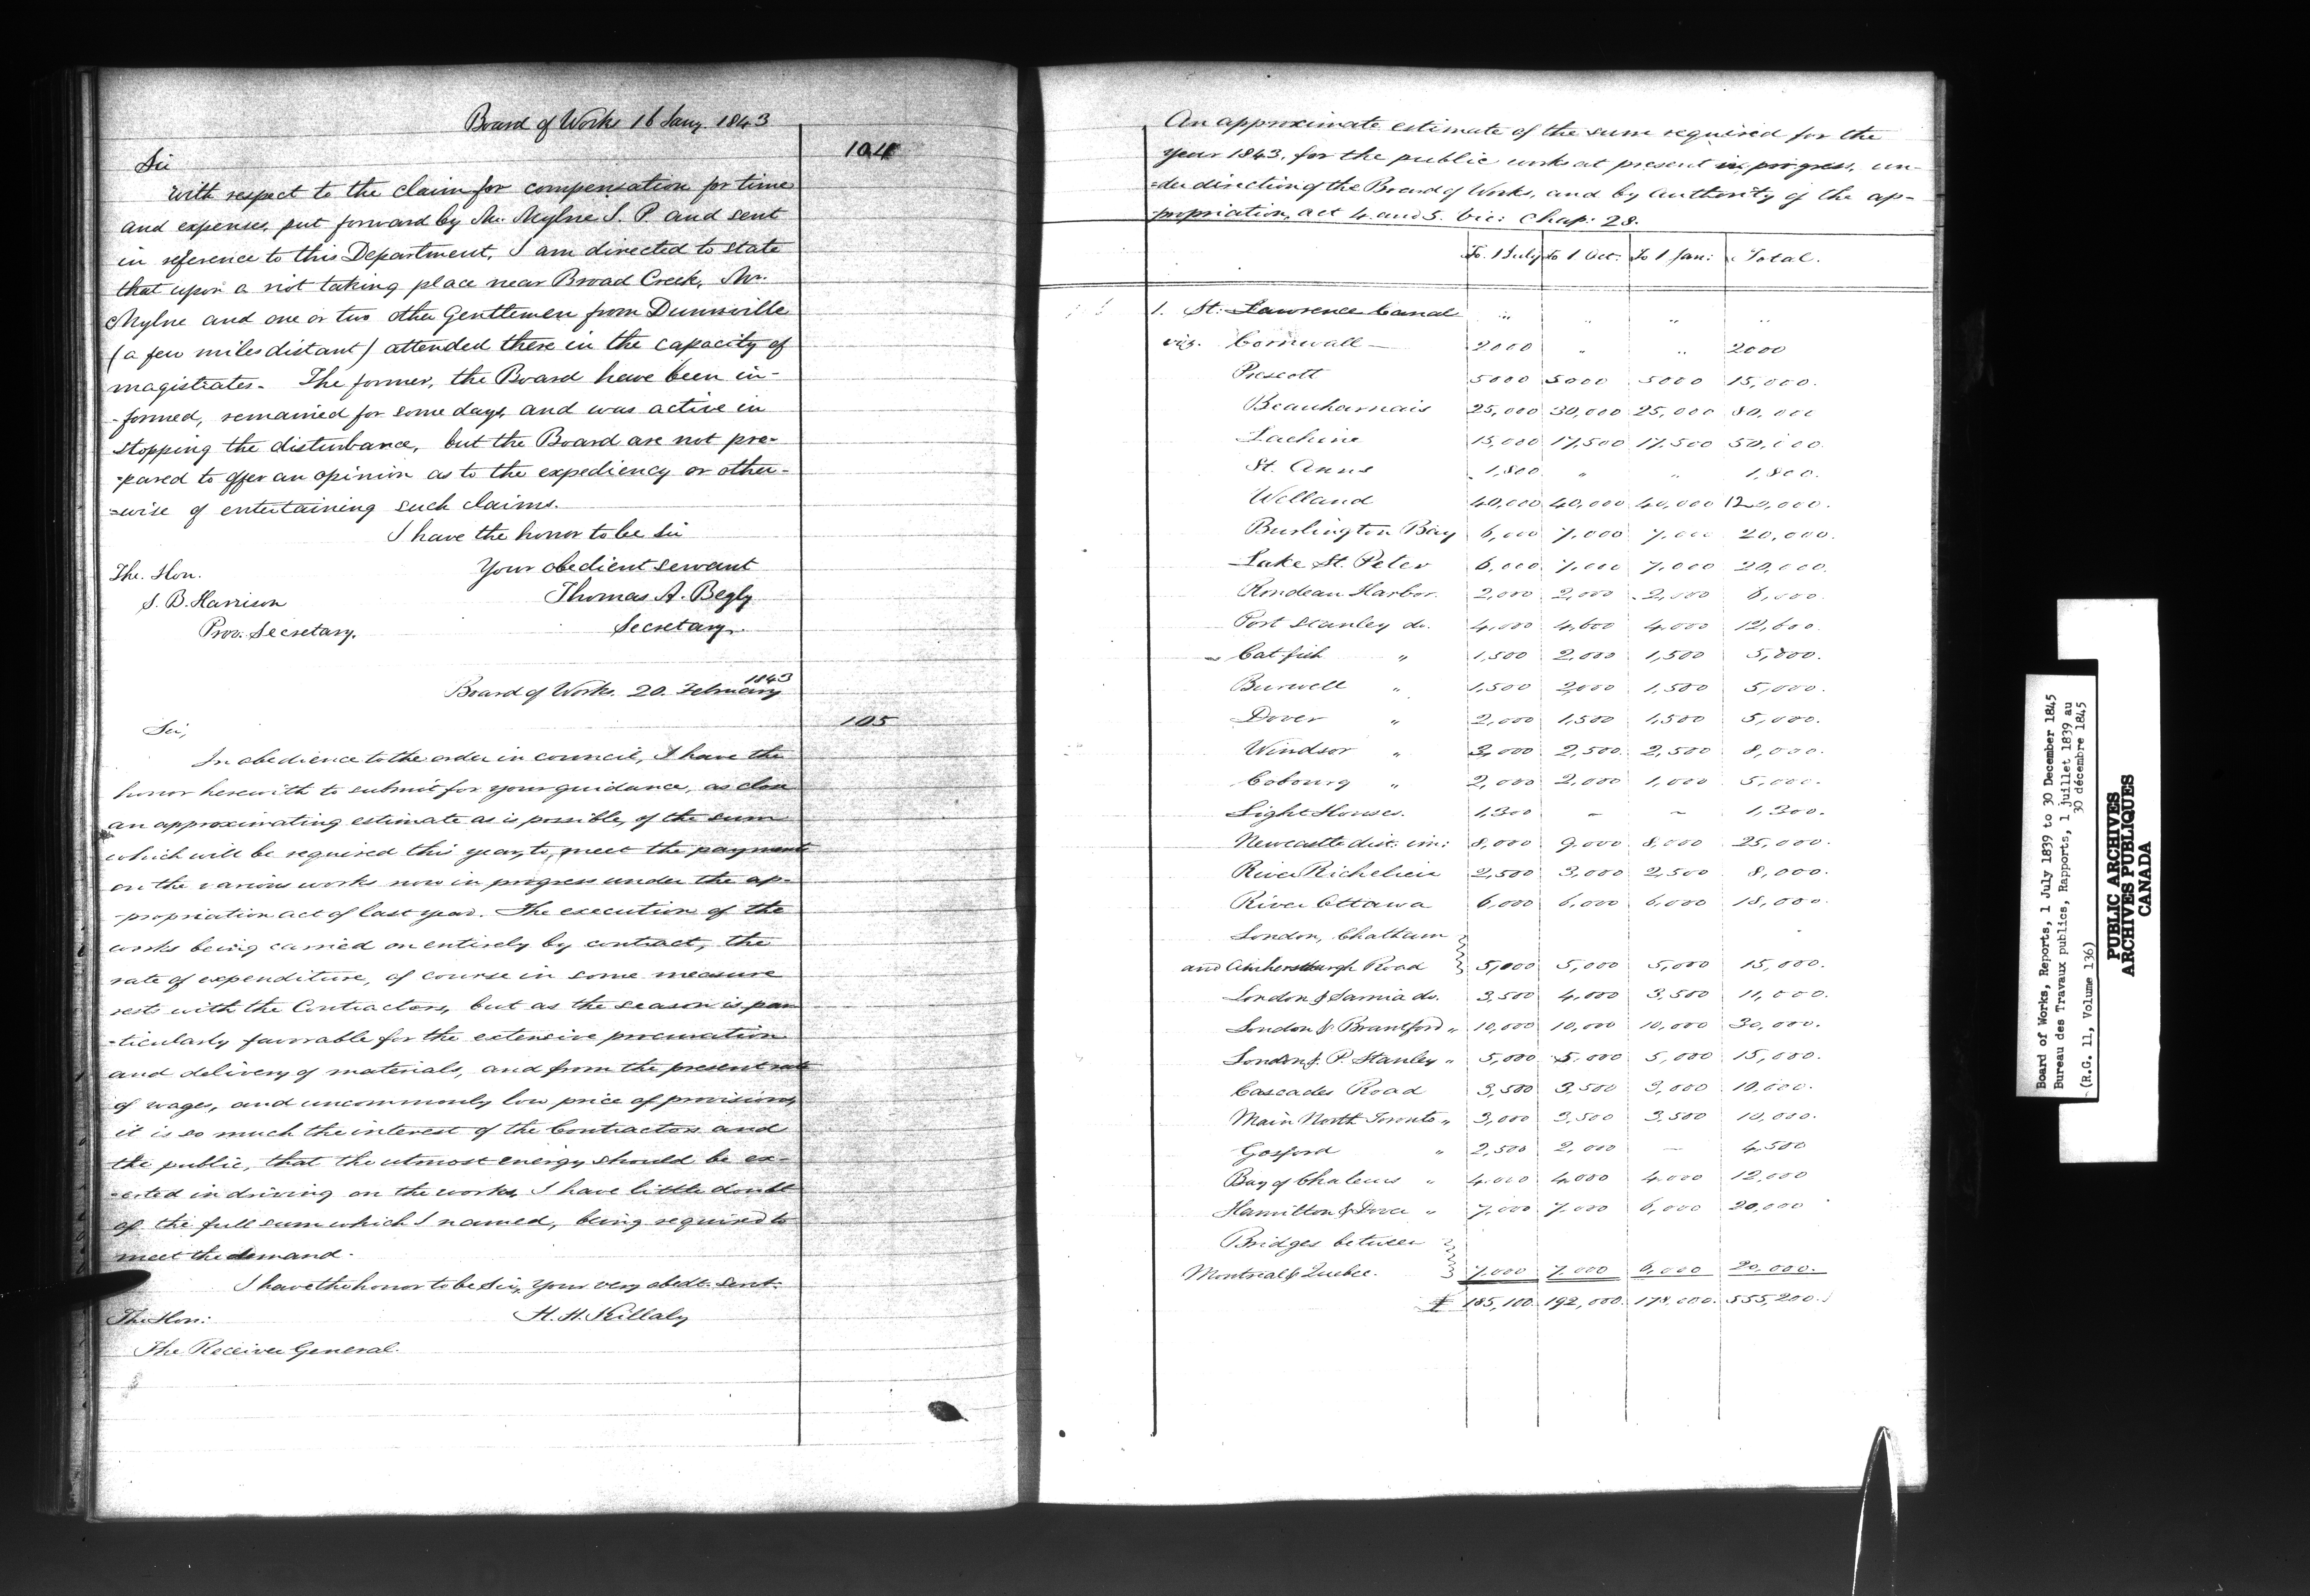 Board of Works 16 Jany. 1843
104
Sir
With respect to the claim for compensation for time
and expenses, put forward by Mr. Mylne J. P. and sent
in reference to this Department, I am directed to state
that upon a riot taking place near Broad Creek, Mr.
Mylne and one or two other Gentlemen from Dunnville
(a few miles distant) attended there in the capacity of
magistrates. The former, the Board have been in-
-formed, remained for some days, and was active in
stopping the disturbance, but the Board are not pre-
-pared to offer an opinion as to the expediency or other-
=wise of entertaining such claims.
I have the honor to be Sir
The. Hon. Your obedient servant
S. B. Harrison Thomas A. Begly
Prov. Secretary. Secretary.
1843
Board of Works. 20. February
105
Sir,
In obedience to the order in council, I have the
honor herewith to submit for your guidance, as close
an approximating estimate as is possible, of the sum
which will be required this year, to, meet the payments
on the various works now in progress under the ap-
-propriation act of last year. The execution of the
works being carried on entirely by contract, the
rate of expenditure, of course in some measure
rests with the Contractors, but as the season is par
-ticularly favorable for the extensive procuration
and delivery of materials, and from the present rate
of wages, and uncommonly low price of provisions,
it is so much the interest of the Contractors and
the public, that the utmost energy should be ex-
-erted in driving on the works, I have little doubt
of the full sum which I named, being required to
meet the demand.
I have the honor to be Sir, Your very obedt. Servt.
The Hon: H. H. Killaly
The Receiver General.
An approximate estimate of the sum required for the
year 1843, for the public works at present in progress, un-
-der direction of the Board of Works, and by Authority of the ap-
-propriation, act 4. and 5. Vic: Chap: 28.
To. 1 July to 1 Oct. To 1 Jan: Total.
1. St. Lawrence Canal " " " "
viz. Cornwall — 2000 " " 2000
Prescott 5000 5000 5000 15,000.
Beauharnais 25,000 30,000 25,000 80,000
Lachine 15,000 17,500 17,500 50,000.
St. Anns 1,800 " " 1,800.
Welland 40,000 40,000 40,000 120,000.
Burlington Bay 6,000 7,000 7,000 20,000.
Lake St. Peter 6,000 7,000 7,000 20,000.
Rondeau Harbor. 2,000 2,000 2,000 6,000.
Port Stanley do. 4,000 4,600 4,000 12,600.
Cat fish " 1,500 2,000 1,500 5,000.
Burwell " 1,500 2,000 1,500 5,000.
Dover " 2,000 1,500 1,500 5,000.
Windsor " 3,000 2,500 2,500 8,000.
Cobourg " 2,000 2,000 1,000 5,000.
Light Houses. 1,300 – ~ 1,300.
Newcastle dist. im: 8,000 9,000 8,000 25,000.
River Richelieu 2,500 3,000 2,500 8,000.
River Ottawa 6,000 6,000 6,000 18,000.
London, Chatham
and Amherstburgh Road 5,000 5,000 5,000 15,000.
London & Sarnia do. 3,500 4,000 3,500 11,000.
London & Brantford " 10,000 10,000 10,000 30,000.
London & P. Stanley " 5,000 5,000 5,000 15,000.
Cascades Road 3,500 3,500 3,000 10,000.
Main North Toronto " 3,000 3,500 3,500 10,000.
Gosford " 2,500 2,000 — 4,500
Bay of Chaleurs " 4,000 4,000 4,000 12,000
Hamilton & Dover " 7,000 7,000 6,000 20,000
Bridges between
Montreal & Quebec. 7,000 7,000 6,000 20,000.
£ 185,100. 192,000. 178,000. 555,200.
Board of Works, Reports, 1 July 1839 to 30 December 1845
Bureau des Travaux publics, Rapports, 1 juillet 1839 au
30 décembre 1845
(R.G. 11, Volume 136)
PUBLIC ARCHIVES
ARCHIVES PUBLIQUES
CANADA